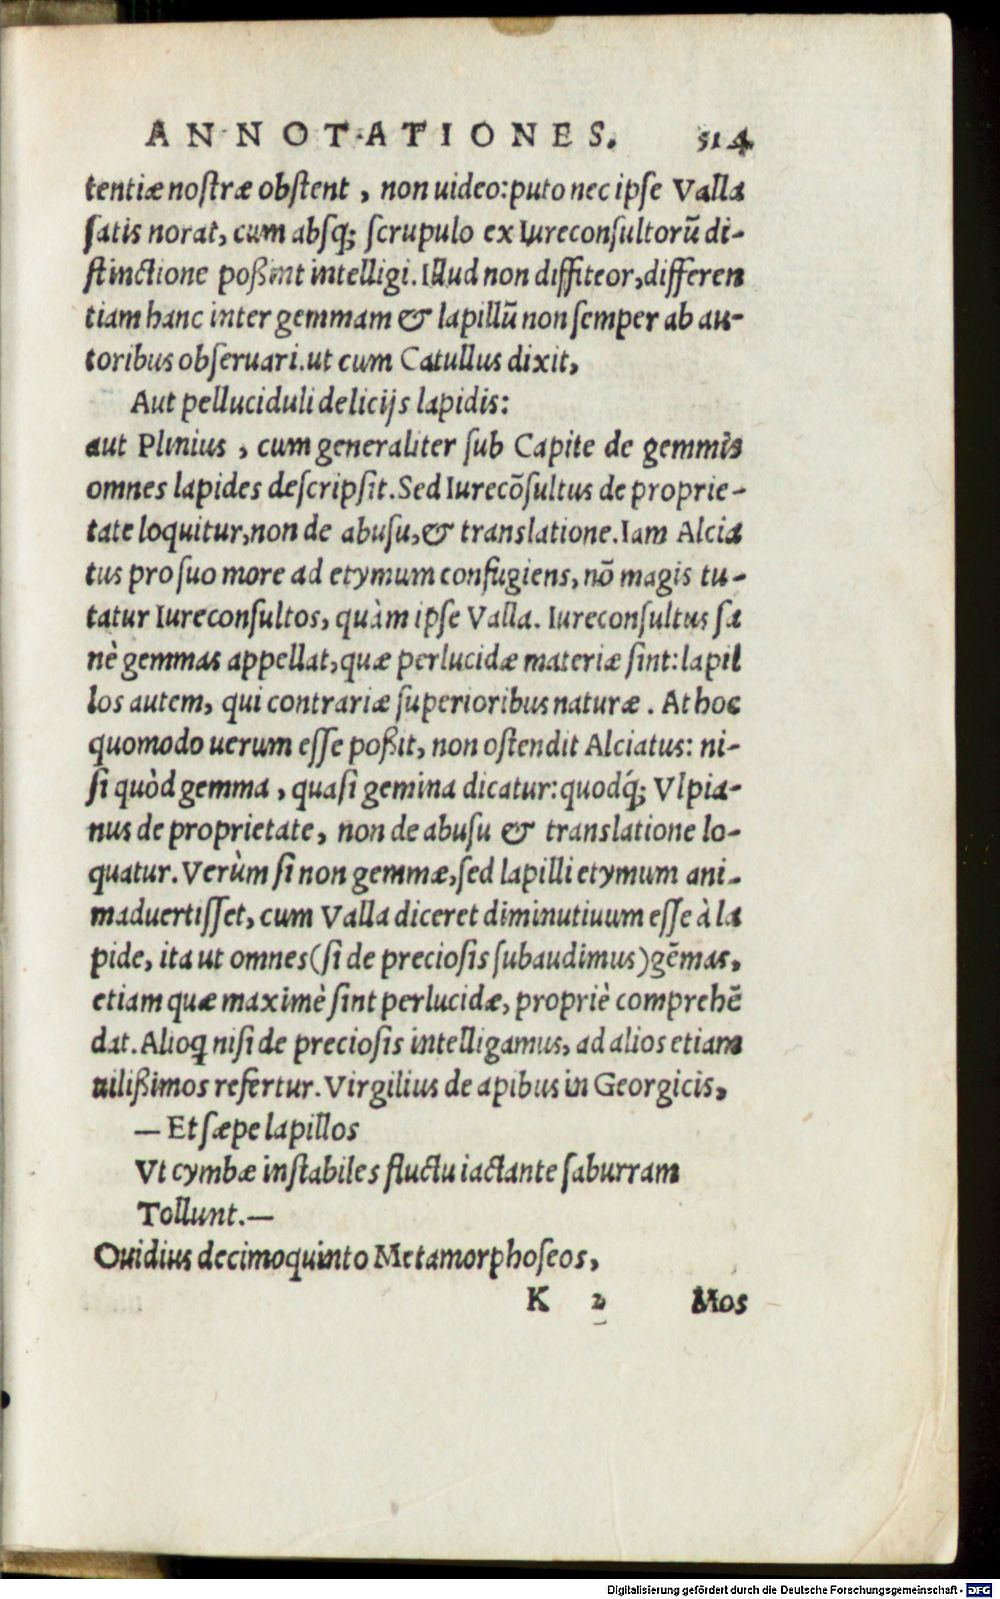 ANNOTATIONES. 514
tentiæ nostræ obstent, non uideo: puto nec ipse Valla
satis norat, cum absq; scrupulo ex Iureconsultorū di-
stinctione poßint intelligi. Illud non diffiteor, differen
tiam hanc inter gemmam & lapillū non semper ab au-
toribus obseruari. ut cum Catullus dixit,
Aut pelluciduli delicijs lapidis:
aut Plinius, cum generaliter sub Capite de gemmis
omnes lapides descripsit. Sed Iurecōsultus de proprie-
tate loquitur, non de abusu, & translatione. Iam Alcia
tus pro suo more ad etymum confugiens, nō magis tu-
tatur Iureconsultos, quàm ipse Valla. Iureconsultus sa
nè gemmas appellat, quæ perlucidæ materiæ sint: lapil
los autem, qui contrariæ superioribus naturæ. At hoc
quomodo uerum esse poßit, non ostendit Alciatus: ni-
si quòd gemma, quasi gemina dicatur: quodq́; Vlpia-
nus de proprietate, non de abusu & translatione lo-
quatur. Verùm si non gemmæ, sed lapilli etymum ani-
maduertisset, cum Valla diceret diminutiuum esse à la
pide, ita ut omnes (si de preciosis subaudimus) gēmas,
etiam quæ maximè sint perlucidæ, propriè comprehē
dat. Alioq nisi de preciosis intelligamus, ad alios etiam
uilißimos refertur. Virgilius de apibus in Georgicis,
— Et sæpe lapillos
Vt cymbæ instabiles fluctu iactante saburram
Tollunt. —
Ouidius decimoquinto Metamorphoseos,
K 2 Mos
Digitalisierung gefördert durch die Deutsche Forschungsgemeinschaft - DFG